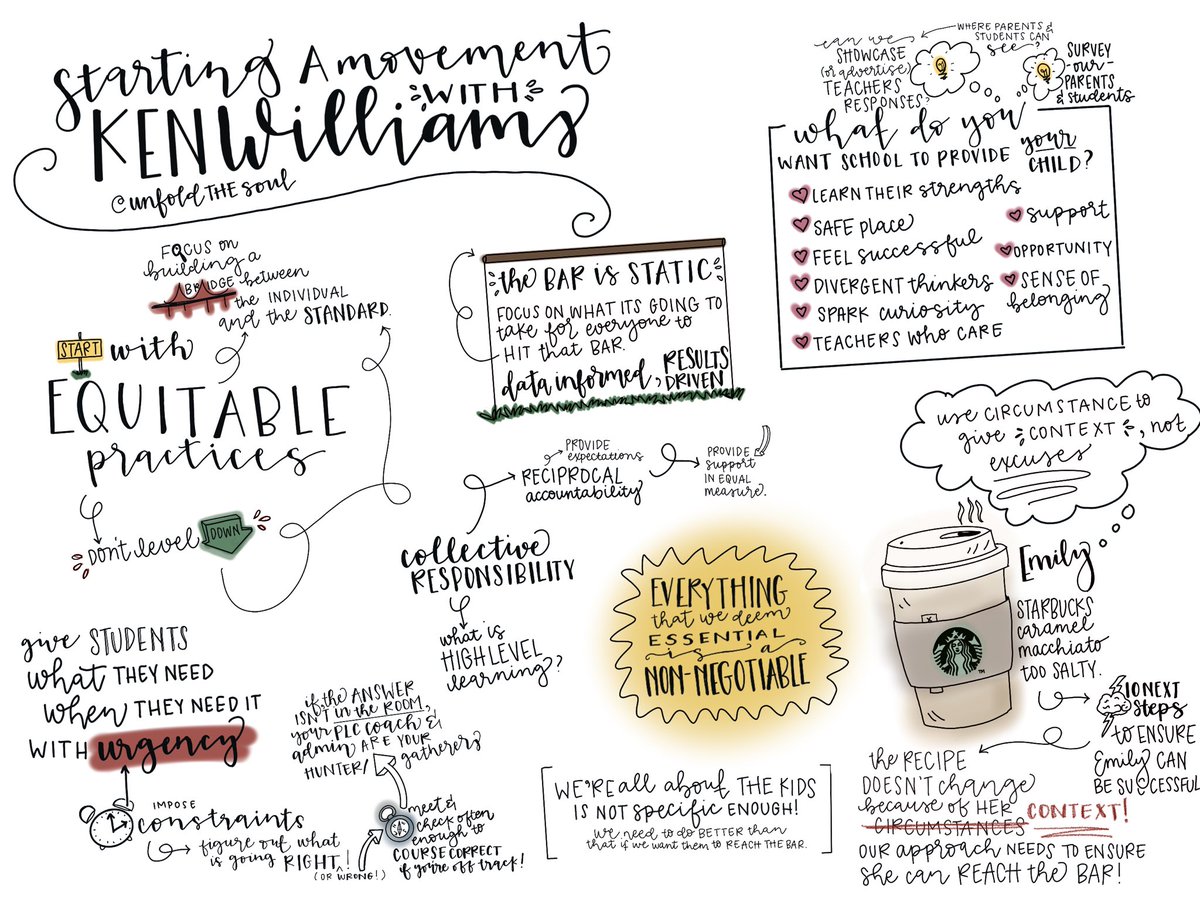 starting A movement
WITH
KEN Williams
@unfold THE soul
FOCUS on
building a
BRIDGE between
the INDIVIDUAL
and the STANDARD.
START with
EQUITABLE
practices
DON'T level DOWN
give STUDENTS
what THEY NEED
when THEY NEED IT
WITH urgency
IMPOSE
constraints
figure out what
is going RIGHT!
(OR WRONG!)
meet &
check often
enough to
COURSE CORRECT
if you're off track!
if the ANSWER
ISN'T in the ROOM,
your PLC coach &
admin ARE YOUR
HUNTER/gatherers
the BAR is STATIC
FOCUS ON WHAT ITS GOING TO
take for everyone to
HIT that BAR.
data informed, RESULTS
DRIVEN
collective
RESPONSIBILITY
PROVIDE
expectations
RECIPROCAL
accountability
PROVIDE
support
IN EQUAL
measure.
what is
HIGH LEVEL
learning?
EVERYTHING
that we deem
ESSENTIAL
is a
NON-NEGOTIABLE
WE'RE all about THE KIDS
IS NOT specific ENOUGH!
we need to do BETTER than
that if we want them to REACH THE BAR.
can we
SHOWCASE
(or advertise)
TEACHERS
RESPONSES?
WHERE PARENTS &
STUDENTS CAN
see?
SURVEY
our
PARENTS
& students
what do you
WANT SCHOOL TO PROVIDE your
CHILD?
LEARN THEIR strengths
SAFE place
FEEL successful
DIVERGENT thinkers
SPARK curiosity
TEACHERS who CARE
support
OPPORTUNITY
SENSE OF
belonging
use CIRCUMSTANCE to
give CONTEXT, not
excuses
Emily
STARBUCKS
caramel
macchiato
TOO SALTY.
TM
10 NEXT
steps
to ENSURE
Emily CAN
BE SUCCESSFUL
the RECIPE
DOESN'T change
because of HER
CIRCUMSTANCES CONTEXT!
OUR approach NEEDS TO ENSURE
she can REACH the BAR!